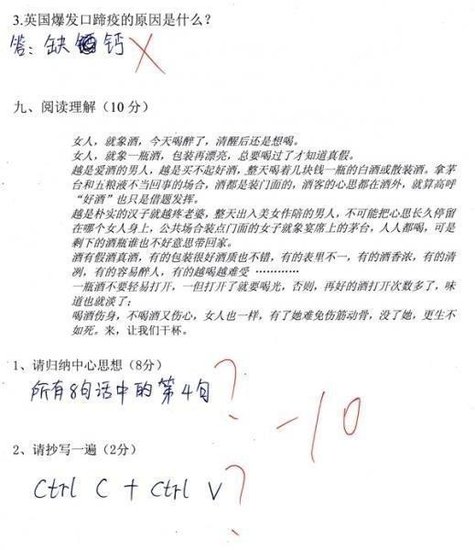 3.英国爆发口蹄疫的原因是什么?
答: 缺钙
九、阅读理解(10 分)
女人,就象酒,今天喝醉了,清醒后还是想喝。
女人,就象一瓶酒,包装再漂亮,总要喝过了才知道真假。
越是爱酒的男人,越是买不起好酒,整天喝着几块钱一瓶的白酒或散装酒。拿茅
台和五粮液不当回事的场合,酒都是装门面的,酒客的心思都在酒外,就算高呼
“好酒”也只是借题发挥。
越是朴实的汉子就越疼老婆,整天出入美女作陪的男人,不可能把心思长久停留
在哪个女人身上,公共场合装点门面的女子就象宴席上的茅台,人人都喝,可是
剩下的酒瓶谁也不好意思带回家。
酒有假酒真酒,有的包装很好酒质也不错,有的表里不一,有的酒香浓,有的清
冽,有的容易醉人,有的越喝越难受 …………
一瓶酒不要轻易打开,一但打开了就要喝光,否则,再好的酒打开次数多了,味
道也就淡了;
喝酒伤身,不喝酒又伤心,女人也一样,有了她难免伤筋动骨,没了她,更生不
如死。来,让我们干杯。
1、请归纳中心思想(8分)
所有8句话中的第4句 ?
-10
2、请抄写一遍(2分)
Ctrl C + Ctrl V ?